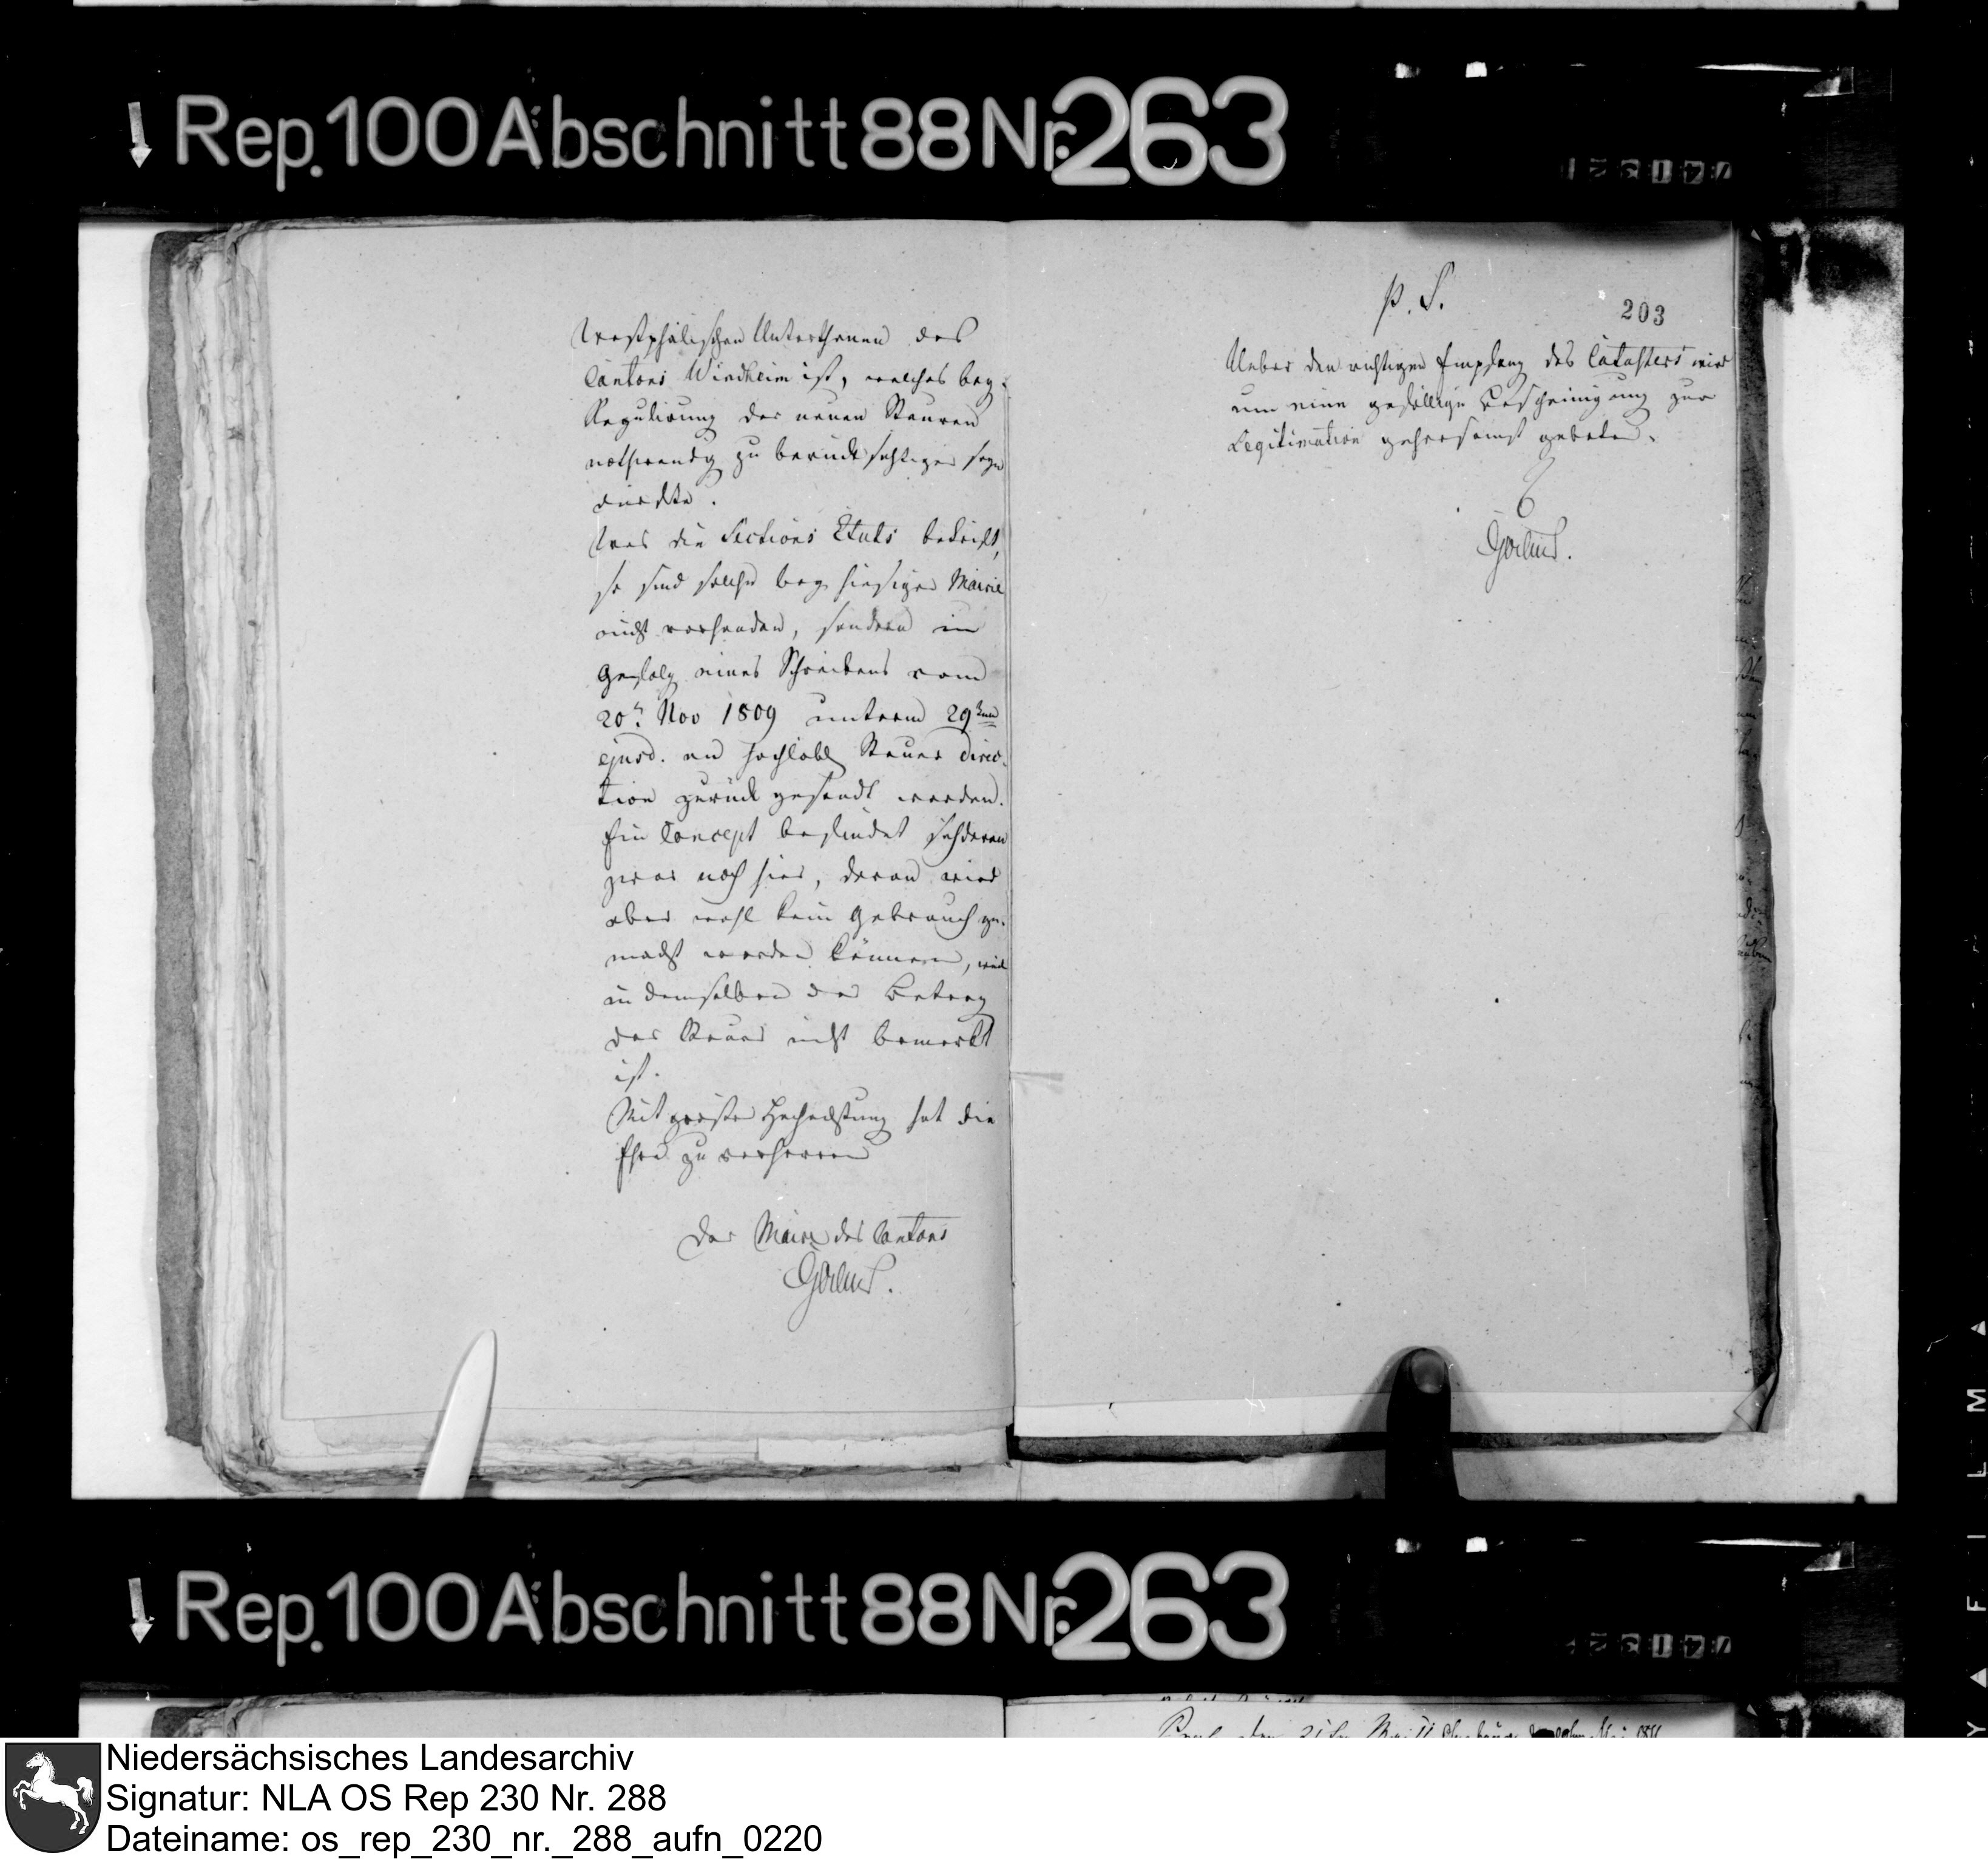 Rep. 100 Abschnitt 88 Nr. 263
Westphälischen Unterthanen des
Cantons Windheim ist, welches bey
Regulirung der neuen Steuren
nothwendig zu berücksichtigen seyn
dürfte.
Was die Sections Etats betrift,
so sind solche bey hiesiger Mairie
nicht vorhanden, sondern in
Gefolg eines Schreibens vom
20ten Nov 1809 unterm 29ten
ejusd. an hochlöbl Steuer Direc-
tion zurück gesandt worden.
Ein Concept befindet sich davon
zwar noch hier, davon wird
aber wohl kein Gebrauch ge-
macht werden können, weil
in demselben der Betrag
der Steuer nicht bemerkt
ist.
Mit größter Hochachtung hat die
Ehre zu verharren
Der Maire des Cantons
p. S.
203
Ueber den richtigen Empfang des Catasters wird
um eine gefällige Bescheinigung zur
Legitimation gehorsamst gebeten.
Rep. 100 Abschnitt 88 Nr. 263
FILMA
Niedersächsisches Landesarchiv
Signatur: NLA OS Rep 230 Nr. 288
Dateiname: os_rep_230_nr._288_aufn_0220